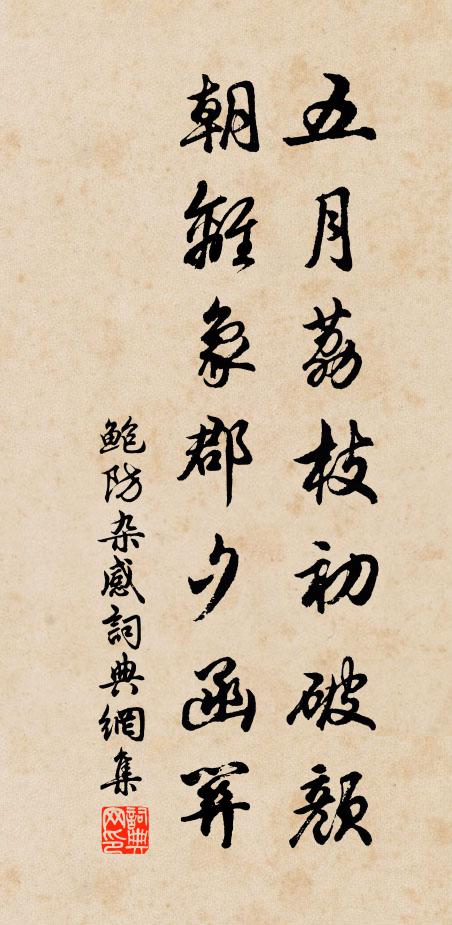 五月荔枝初破顏
朝離象郡夕函關
鮑防杂感詞典網集
詞典网印